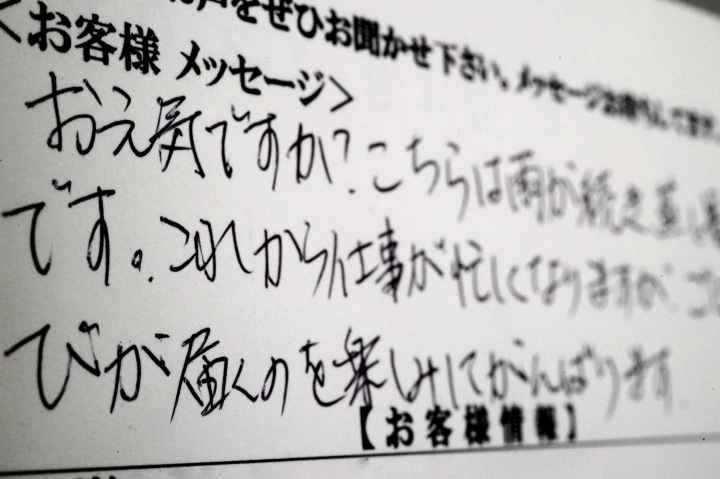 声をぜひお聞かせ下さい。メッセージお待ちしてます
＜お客様 メッセージ＞
お元気ですか？こちらは雨が続き蒸し
です。これから仕事が忙しくなりますが、
びが届くのを楽しみにがんばります
【お客様情報】